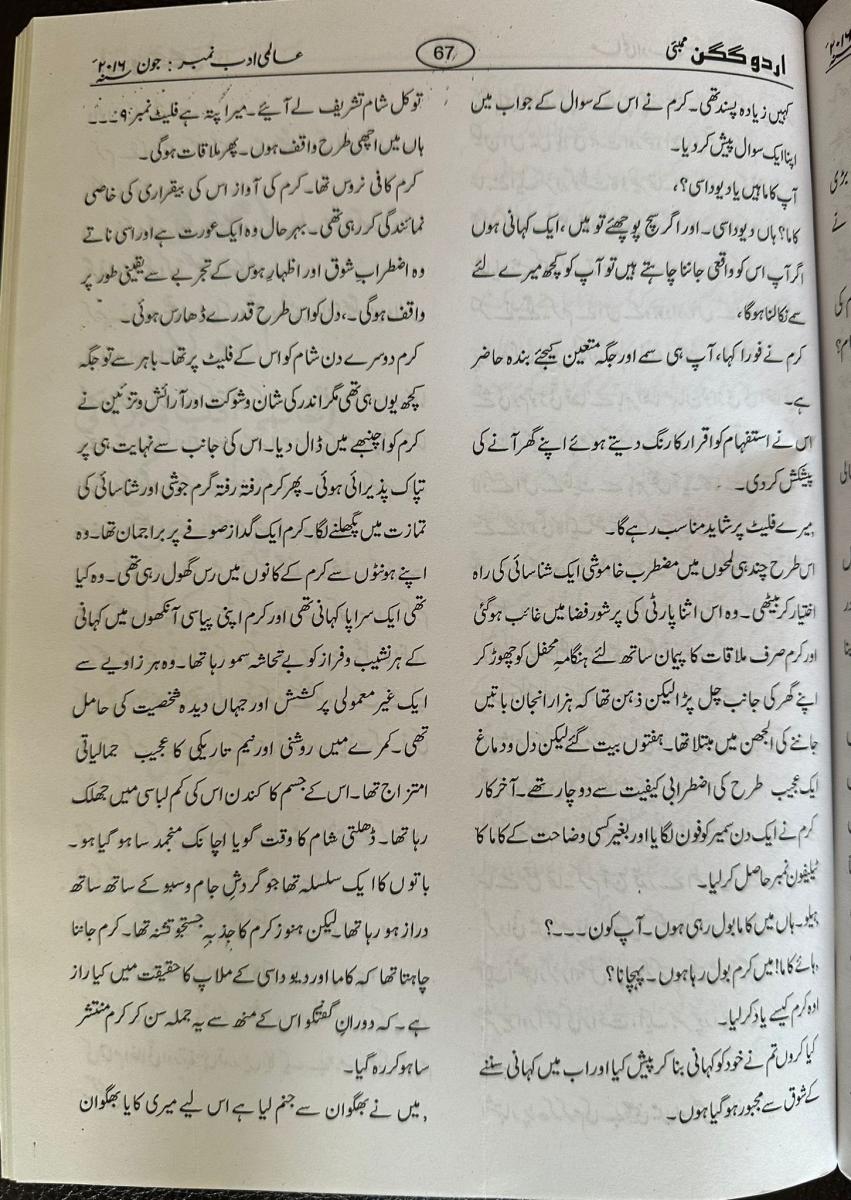 اردو گگن ممبئی
67
عالمی ادب نمبر : جون ۲۰۱۶ء
کہیں زیادہ پسند تھی۔ کرم نے اس کے سوال کے جواب میں
اپنا ایک سوال پیش کر دیا۔
آپ کاما ہیں یا دیوداسی؟،
کاما؟ ہاں دیوداسی۔ اور اگر سچ پوچھئے تو میں، ایک کہانی ہوں
اگر آپ اس کو واقعی جاننا چاہتے ہیں تو آپ کو کچھ میرے لئے
سے نکالنا ہوگا،
کرم نے فورا کہا، آپ ہی سمے اور جگہ متعین کیجئے بندہ حاضر
ہے۔
اس نے استفہام کو اقرار کا رنگ دیتے ہوئے اپنے گھر آنے کی
پیشکش کر دی۔
میرے فلیٹ پر شاید مناسب رہے گا۔
اس طرح چند ہی لمحوں میں مضطرب خاموشی ایک شناسائی کی راہ
اختیار کر بیٹھی۔ وہ اس اثنا پارٹی کی پرشور فضا میں غائب ہوگئی
اور کرم صرف ملاقات کا پیمان ساتھ لئے ہنگامہِ محفل کو چھوڑ کر
اپنے گھر کی جانب چل پڑا لیکن ذہن تھا کہ ہزار انجان باتیں
جاننے کی الجھن میں مبتلا تھا۔ ہفتوں بیت گئے لیکن دل و دماغ
ایک عجیب طرح کی اضطرابی کیفیت سے دوچار تھے۔ آخر کار
کرم نے ایک دن سمیر کو فون لگایا اور بغیر کسی وضاحت کے کاما کا
ٹیلیفون نمبر حاصل کر لیا۔
ہیلو۔ ہاں میں کاما بول رہی ہوں۔ آپ کون ۔۔۔؟
ہائے کاما! میں کرم بول رہا ہوں۔ پہچانا؟
اوہ کرم کیسے یاد کر لیا۔
کیا کروں تم نے خود کو کہانی بنا کر پیش کیا اور اب میں کہانی سننے
کے شوق سے مجبور ہو گیا ہوں۔
تو کل شام تشریف لے آئیے۔ میرا پتہ ہے فلیٹ نمبر ۹۔۔۔
ہاں میں اچھی طرح واقف ہوں۔ پھر ملاقات ہوگی۔
کرم کافی نروس تھا۔ کرم کی آواز اس کی بیقراری کی خاصی
نمائندگی کر رہی تھی۔ بہر حال وہ ایک عورت ہے اور اسی ناتے
وہ اضطرابِ شوق اور اظہارِ ہوس کے تجربے سے یقینی طور پر
واقف ہوگی۔، دل کو اس طرح قدرے ڈھارس ہوئی۔
کرم دوسرے دن شام کو اس کے فلیٹ پر تھا۔ باہر سے تو جگہ
کچھ یوں ہی تھی مگر اندر کی شان و شوکت اور آرائش و تزئین نے
کرم کو اچنبھے میں ڈال دیا۔ اس کی جانب سے نہایت ہی پر
تپاک پذیرائی ہوئی۔ پھر کرم رفتہ رفتہ گرم جوشی اور شناسائی کی
تمازت میں پگھلنے لگا۔ کرم ایک گداز صوفے پر براجمان تھا۔ وہ
اپنے ہونٹوں سے کرم کے کانوں میں رس گھول رہی تھی۔ وہ کیا
تھی ایک سراپا کہانی تھی اور کرم اپنی پیاسی آنکھوں میں کہانی
کے ہر نشیب و فراز کو بے تحاشہ سمو رہا تھا۔ وہ ہر زاویے سے
ایک غیر معمولی پرکشش اور جہاں دیدہ شخصیت کی حامل
تھی۔ کمرے میں روشنی اور نیم تاریکی کا عجیب جمالیاتی
امتزاج تھا۔ اس کے جسم کا کندن اس کی کم لباسی میں جھلک
رہا تھا۔ ڈھلتی شام کا وقت گویا اچانک منجمد سا ہو گیا ہو۔
باتوں کا ایک سلسلہ تھا جو گردشِ جام و سبو کے ساتھ ساتھ
دراز ہو رہا تھا۔ لیکن ہنوز کرم کا جذبہِ جستجو تشنہ تھا۔ کرم جاننا
چاہتا تھا کہ کاما اور دیوداسی کے ملاپ کا حقیقت میں کیا راز
ہے۔ کہ دورانِ گفتگو اس کے منھ سے یہ جملہ سن کر کرم منتشر
سا ہو کر رہ گیا۔
، میں نے بھگوان سے جنم لیا ہے اس لیے میری کایا بھگوان